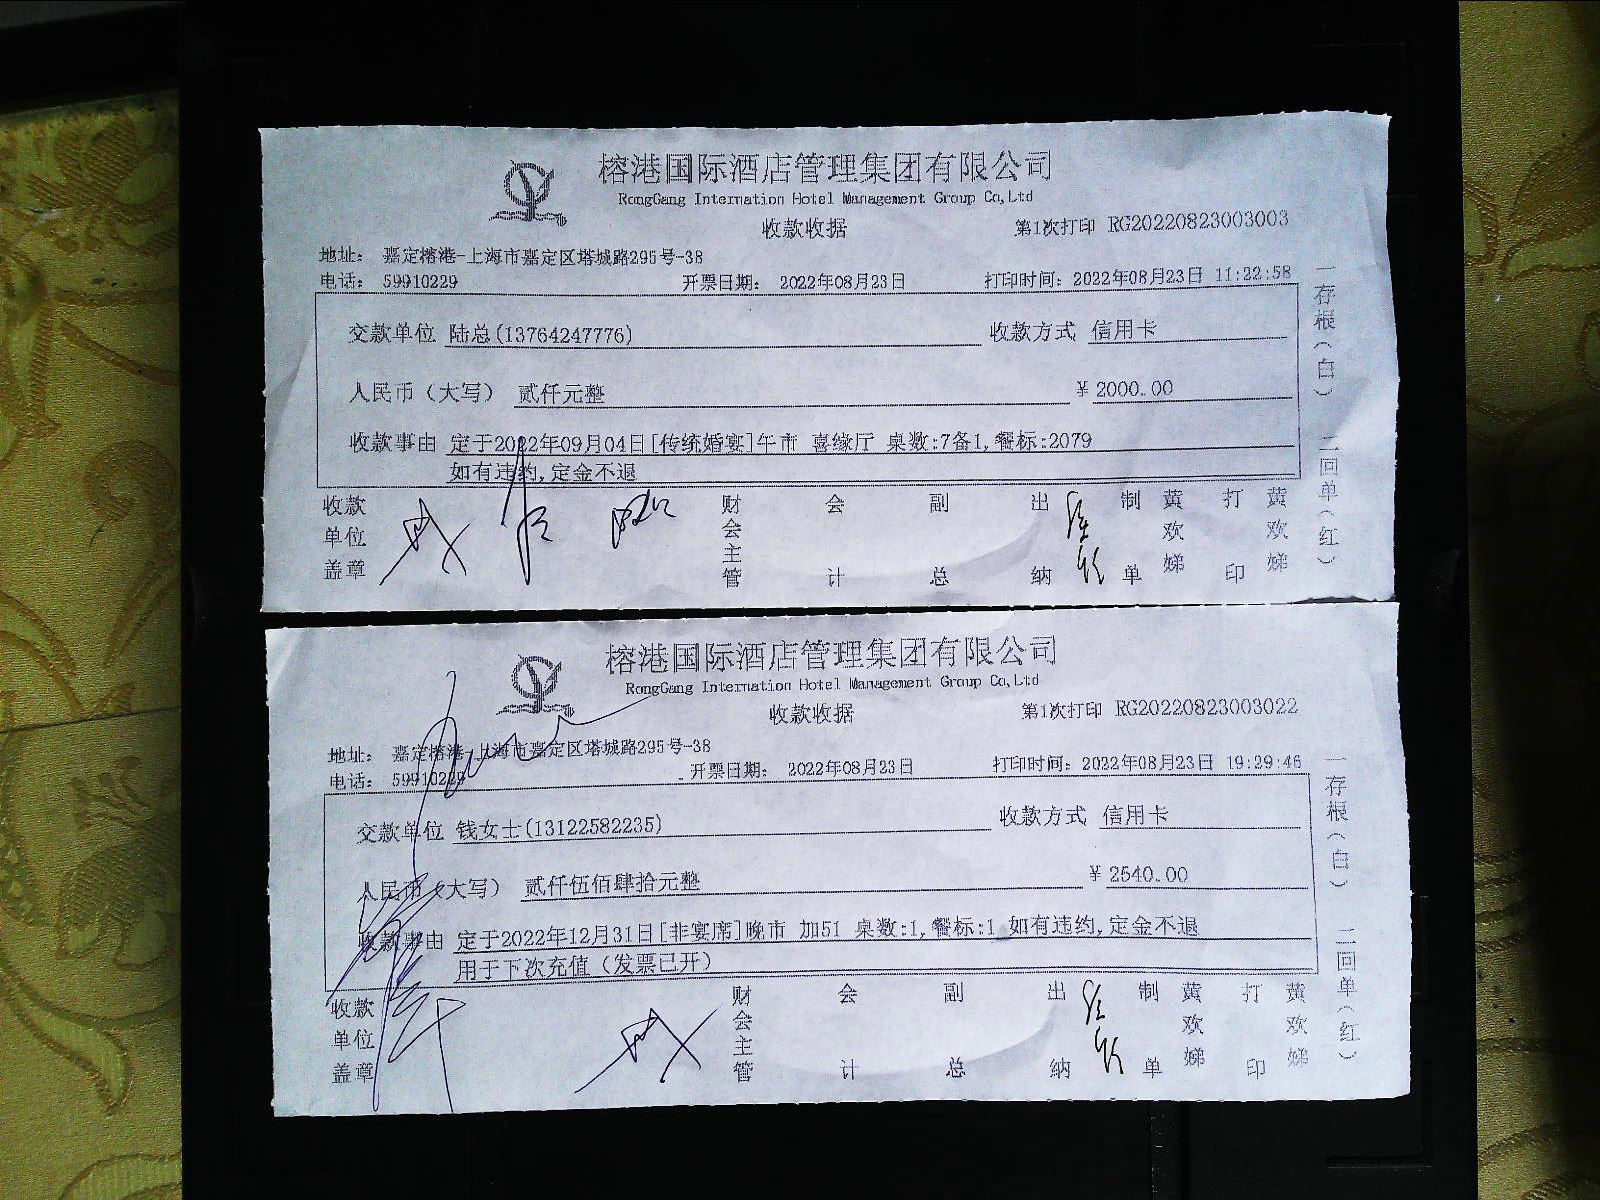 榕港国际酒店管理集团有限公司
RongGang Internation Hotel Management Group Co,Ltd
收款收据 第1次打印 RG20220823003003
地址: 嘉定榕港-上海市嘉定区塔城路295号-38
电话: 59910229 开票日期: 2022年08月23日 打印时间: 2022年08月23日 11:22:58
交款单位 陆总(13764247776) 收款方式 信用卡
人民币(大写) 贰仟元整 ¥ 2000.00
收款事由 定于2022年09月04日[传统婚宴]午市 喜缘厅 桌数:7备1,餐标:2079
如有违约,定金不退
收款单位盖章 财会主管 会计 副总 出纳 制单 黄欢娣 打印 黄欢娣
一存根(白) 二回单(红)
榕港国际酒店管理集团有限公司
RongGang Internation Hotel Management Group Co,Ltd
收款收据 第1次打印 RG20220823003022
地址: 嘉定榕港-上海市嘉定区塔城路295号-38
电话: 59910229 开票日期: 2022年08月23日 打印时间: 2022年08月23日 19:29:46
交款单位 钱女士(13122582235) 收款方式 信用卡
人民币(大写) 贰仟伍佰肆拾元整 ¥ 2540.00
收款事由 定于2022年12月31日[非宴席]晚市 加51 桌数:1,餐标:1 如有违约,定金不退
用于下次充值(发票已开)
收款单位盖章 财会主管 会计 副总 出纳 制单 黄欢娣 打印 黄欢娣
一存根(白) 二回单(红)